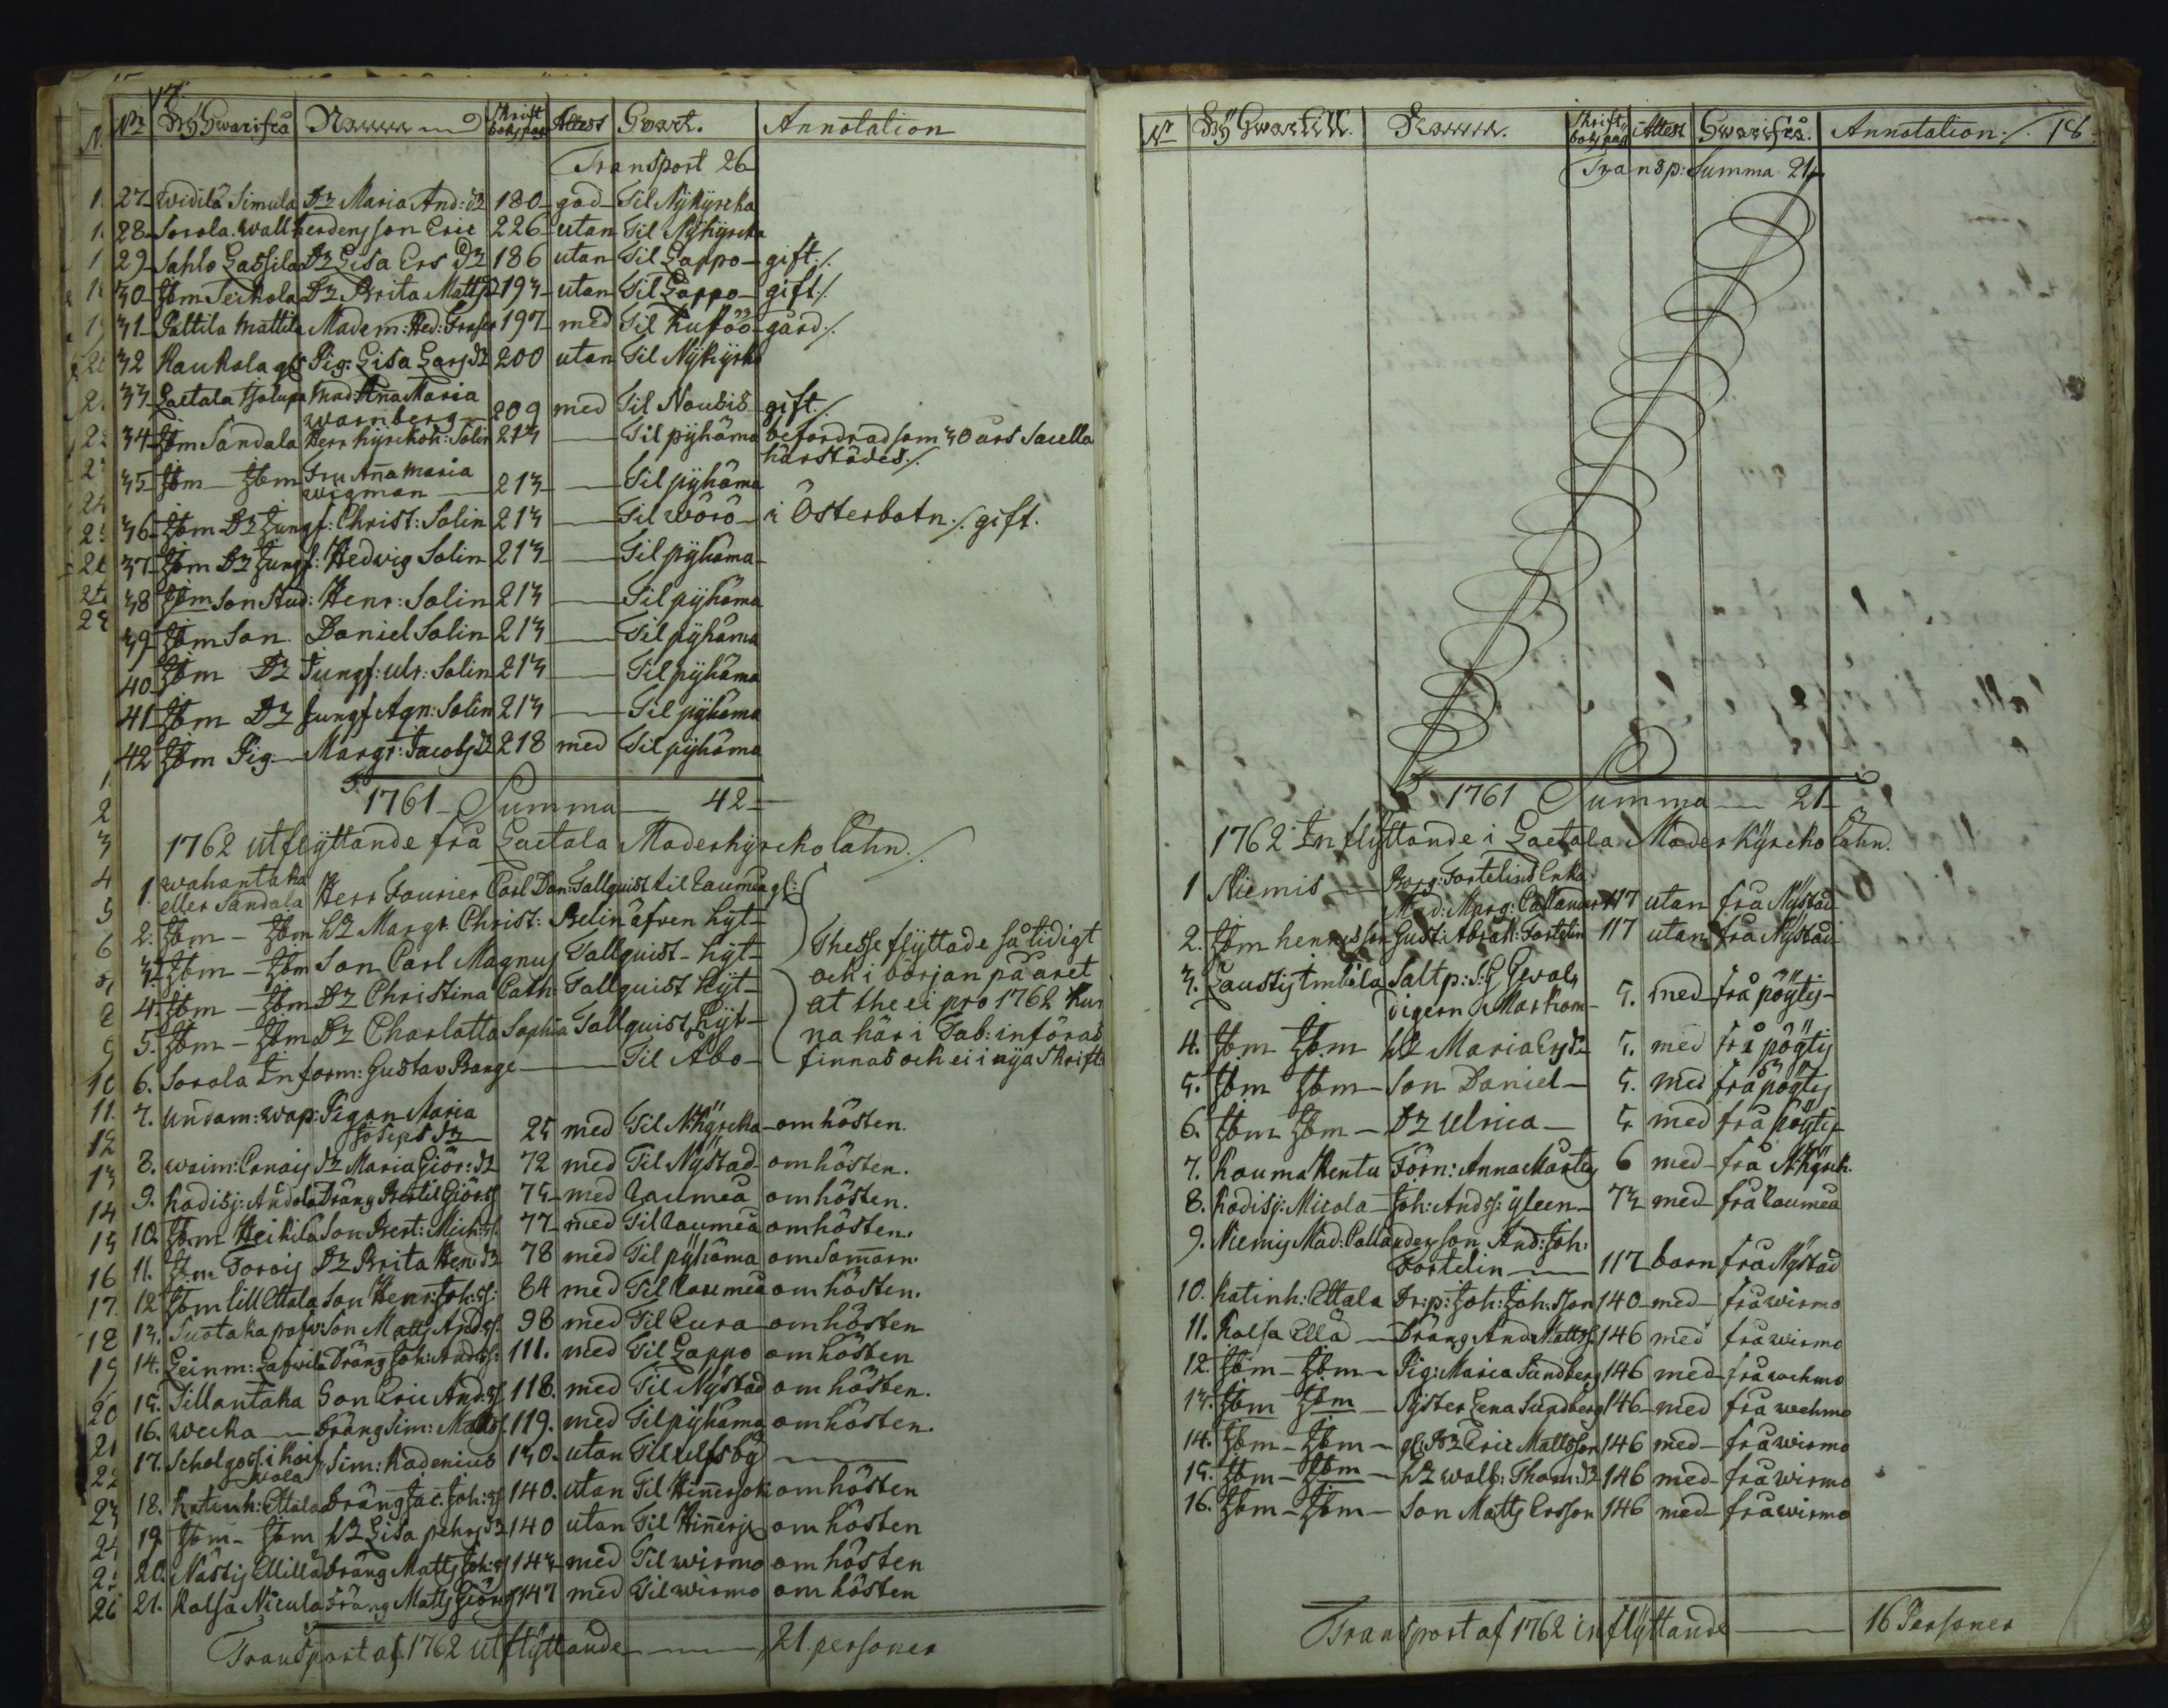 17.
Nr By Hwarifrå Namn Skrift boks pag Attest Hvart. Annotation
Transport 26
27 widilä Simula Dr Maria And: dr 180 god Til Nykyrcka
28 Sorola wallherdens son Eric 226 utan Til Nykyrcka
29 Sahlo Lassila Dr Lisa Ers dr 186 utan Til Lappo gift./.
30 Ibm Seikola Dr Brita Matts dr 193 utan Til Lappo gift./.
31 Paltila Mattila Madem: Hed: Fraser 197 med Til Kustöö gård./.
32 Raukola Pig: Lisa Lars dr 200 utan Til Nykyrka
33 Laetala Mad: Anna Maria
warnberg 209 med Til Nousis gift./.
34 Ibm Sandala Herr Kyrckoh: Salin 213 — Til pyhäma befordrad som 30 års Sacella
härstädes./.
35 Ibm — Ibm Fru Anna Maria
wigman 213 — Til pyhäma
36 Ibm Dr Jungf: Christ: Salin 213 — Til wörö i Österbotn./. gift.
37 Ibm Dr Jungf: Hedwig Salin 213 — Til pyhäma
38 Ibm Son Stud: Henr: Salin 213 — Til pyhäma
39 Ibm Son Daniel Salin 213 — Til pyhäma
40 Ibm Dr Jungf: Ulr: Salin 213 — Til pyhäma
41 Ibm Dr Jungf Agn: Salin 213 — Til pyhäma
42 Ibm Pig Margr: Jacobs dr 218 med Til pyhäma
1761 Summa 42
1762 utflyttande frå Laetala Moderkyrcko lähn./.
1. wahantaka
eller Sandala Herr Fourier Carl Dan: Tallquist til Raumå
2. Ibm — Ibm h Margr. Christ: Relin äfven hyt
3. Ibm — Ibm Son Carl Magnus Tallquist hyt
4. Ibm — Ibm Dr Christina Cath Tallquist hyt
5. Ibm — Ibm Dr Charlotta Sophia Tallquist hyt
6. Sorola Inform: Gustav Bange — Til Åbo
Thesse flyttade så tidigt
ock i början på året
at the ei pro 1762 kun
na här i Tab: införas
finnas och ei i nya Skrift
7. Undam: wap: Pigan Maria
Josephs dr 25 med Til N:kyrcka om hösten.
8. waim: Ernois Dr Maria Giör: dr 72 med Til Nystad om hösten.
9. Kodisj: Andola Dräng Bertil Giörss 75 med Raumå om hösten.
10. Ibm Heikilä Son Bert: Mich: ss. 77 med Til Raumå om hösten.
11. Ibm Torois Dr Brita Hen: dr 78 med Til pyhäma om Som̄arn.
12 Ibm lill Ettala Son Henr: Joh: ss: 84 med Til Raumå om hösten.
13. Suotaka Son Matts Andss. 98 med Til Eura om hösten
14. Leinm: Lafwila Dräng Joh: Andss: 111. med Til Lappo om hösten
15. Tillantaka Son Eric Andss 118. med Til Nystad om hösten.
16. wecka Dräng Sim: Matts 119. med Til pyhäma om hösten.
17. Scholgoss. i Kois
wola Sim: Kadenius 130. utan Til Ulfsby —
18. Katinh: Ettala Dräng Jac: Joh: ss 140. utan Til Hin̄erjoki om hösten
19. Ibm — Ibm h Lisa pehrs dr 140 utan Til Hin̄erj om hösten
20. Nästis Ellilä Dräng Matts Joh: s 143 med Til wirmo om hösten
21. Kalsa Nicula Dräng Matts Giörs 147 med Til wirmo om hösten
Transport af 1762 utflyttande — 21. personer
Nr By Hwartill. Namn. Skrift boks pag Attest Hwarifrå. Annotation./. 18.
Transp: Summa 21
1761 Summa 21
1762 Inflyttande i Laetala Moder Kyrcko lähn.
1 Niemis — Borg: Fortelins Enka
Mad: Marg: Callander 117 utan frå Nystad
2. Ibm hennes son Gust: Abrah: Fortelin 117 utan frå Nystad
3. Laustis Imbila Saltp: S: G Gewal
digern Markom 5. med frå pöytis
4. Ibm Ibm h Maria Ers dr 5. med frå pöytis
5. Ibm Ibm Son Daniel 5. med frå pöytis
6. Ibm Ibm Dr Ulrica 5. med frå pöytis
7. Kouma Hentu Förn: Anna Mårts 6 med frå N:kyrck.
8. Kodisj: Micola Joh: Andss: Yleen 73 med frå Raumå
9. Niemis Mad: Callanders son And: Joh:
Fortelin 117 barn frå Nystad
10. Katinh: Ettala Dr: p: Joh: Joh: sson 140 med frå wirmo
11. Kalsa Ellä Dräng And: Mattss 146 med frå wirmo
12. Ibm — Ibm Pig: Maria Sundberg 146 med frå wehmo
13. Ibm Ibm Syster Lena Sundberg 146 med frå wehmo
14. Ibm — Ibm Eric Mattsson 146 med frå wirmo
15. Ibm — Ibm h walb: Thom: dr 146 med frå wirmo
16. Ibm — Ibm Son Matts Ersson 146 med frå wirmo
Transport af 1762 inflyttande — 16 Personer